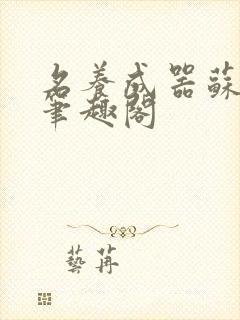 名養成器蘇
筆趣閣
藝苒